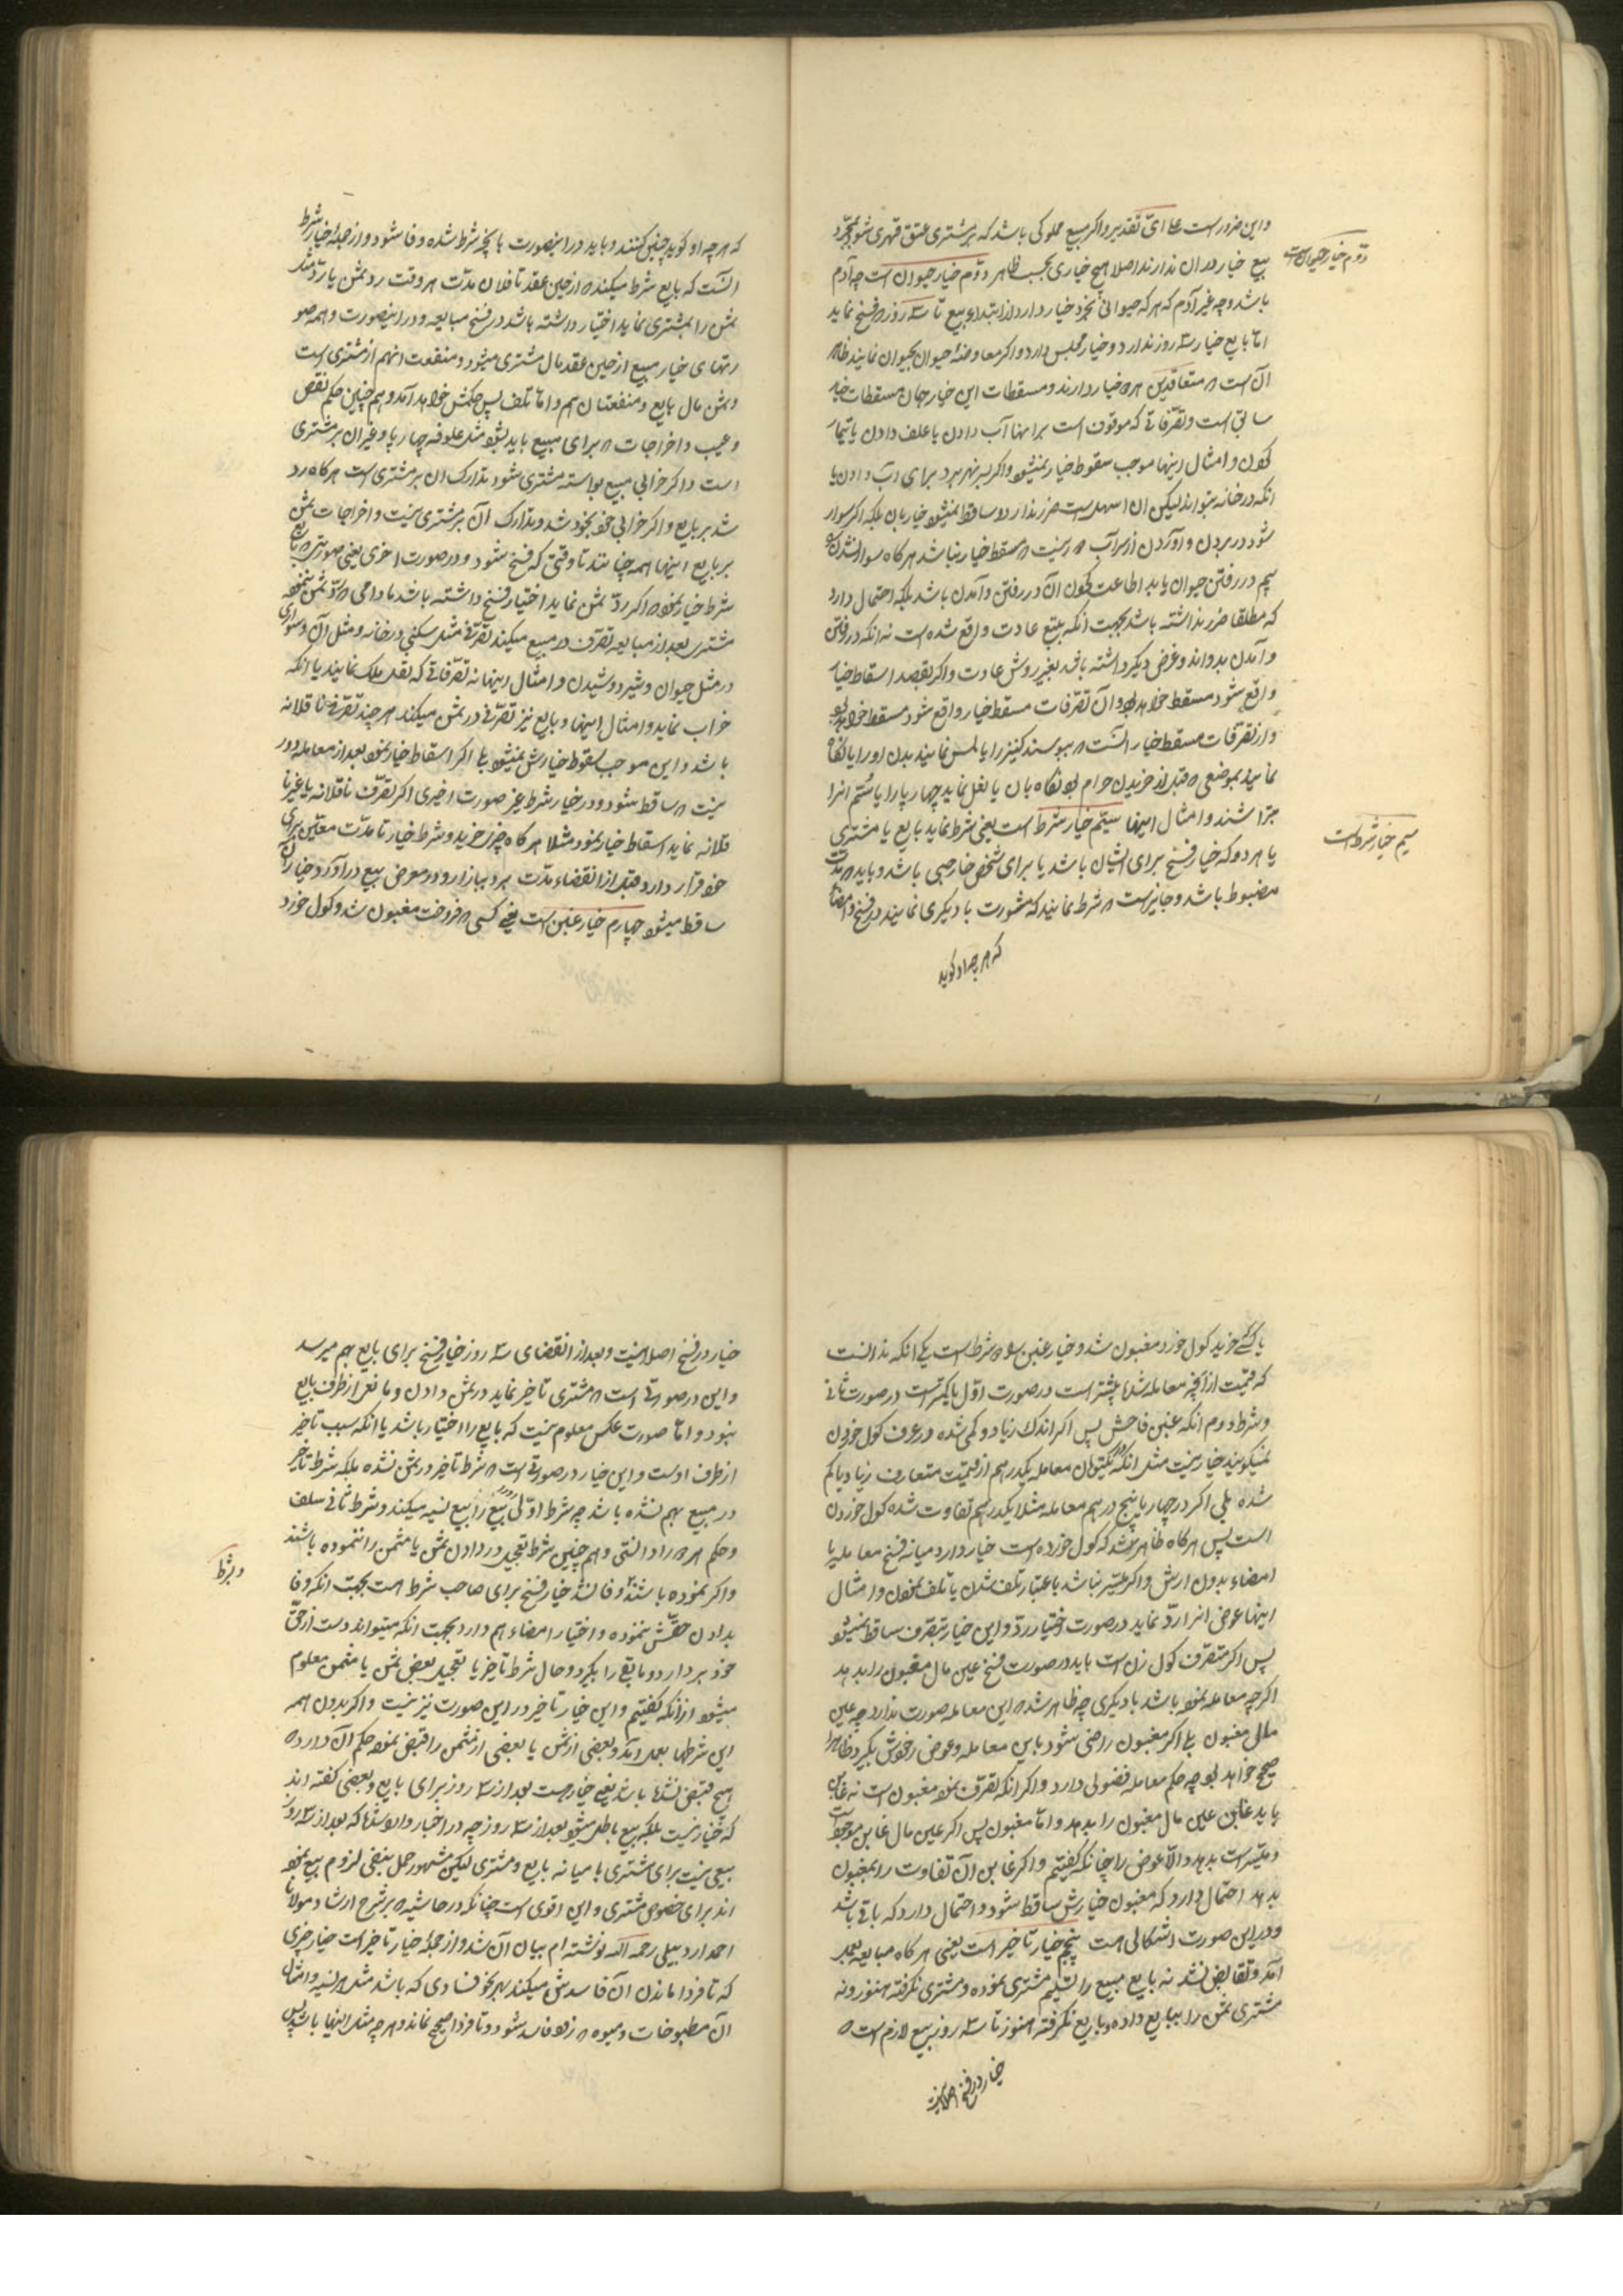 و این ضرور است علی ای تقدیر و اگر مبیع مملوکی باشد که بر مشتری عتق قهری شود بمجرد
بیع خیار در آن ندارند اصلا هیچ خیاری بحسب ظاهر دوّم خیار حیوان است چه آدم
دوّم خیار حیوان است
باشد و چه غیر آدم که هر که حیوانی بخرد خیار دارد از ابتداء بیع تا سه روز که فسخ نماید
امّا بایع خیار سه روز ندارد و خیار مجلس دارد و اگر معاوضهٔ حیوان بحیوان نمایند ظاهر
آن است که متعاقدین هر دو خیار دارند و مسقطات این خیار همان مسقطات خیار
سابق است و تصرّفاتی که موقوف است بر اینها آب دادن یا علف دادن یا تیمار
کردن و امثال اینها موجب سقوط خیار نمیشود و اگر بسر نهر برد برای آب دادن با
آنکه در خانه بتواند لیکن آن اسهل است ضرر ندارد و ساقط نمیشود خیار بآن بلکه اگر سوار
شود در بردن و آوردن از سر آب که مسقط خیار نباشد هر گاه سوار نشدن
هم در رفتن حیوان باید اطاعت کردن آن در رفتن و آمدن باشد بلکه احتمال دارد
که مطلقا ضرر نداشته باشد بجهت آنکه بتبع عادت واقع شده است نه آنکه در رفتن
و آمدن بدواند و غرض دیگر داشته باشد بغیر روش عادت و اگر بقصد اسقاط خیار
واقع شود مسقط خواهد بود و آن تصرّفات مسقط خیار واقع شود مسقط خواهد بود
و از تصرّفات مسقط خیار آنست که ببوسند کنیز را یا لمس نمایند بدن او را یا نگاه
نمایند بموضعی که قبل از خریدن حرام بود نگاه بآن یا نعل نماید چهارپا را یا سُم آنرا
بتراشند و امثال اینها سیّم خیار شرط است یعنی شرط نماید بایع یا مشتری
سیم خیار شرط است
یا هر دو که خیار فسخ برای ایشان باشد یا برای شخص خارجی باشد و باید که مدّت
مضبوط باشد و جایز است که شرط نمایند که مشورت با دیگری نمایند در فسخ و امضا
که هر چه او گوید
که هر چه او گوید چنین کنند و باید در اینصورت بآنچه شرط شده وفا شود و از جملهٔ خیار شرط
آنست که بایع شرط میکند که از حین عقد تا فلان مدّت هر وقت رد ثمن یا رد مثل
ثمن را بمشتری نماید اختیار داشته باشد در فسخ مبایعه و در اینصورت و همه صو
رتهای خیار مبیع از حین عقد مال مشتری میشود و منفعت آنهم از مشتری است
و ثمن مال بایع و منفعتش آن هم و امّا تلف پس حکمش خواهد آمد و هم چنین حکم نقص
و عیب و اخراجات که برای مبیع باید بشود مثل علوفه چهارپا و غیر آن بر مشتری
است و اگر خرابی مبیع بواسطه مشتری شود تدارک آن بر مشتری است هر گاه رد
شد بر بایع و اگر خرابی خود بخود شد و تدارک آن بر مشتری نیست و اخراجات ثمن
بر بایع اینها همه چنانند تا وقتی که فسخ شود و در صورت اخری یعنی صورتی که بایع
شرط خیار نموده که اگر ردّ ثمن نماید اختیار فسخ داشته باشد مادامی که ردّ ثمن ننموده
مشتری بعد از مبایعه تصرّف در مبیع میکند تصرّفی مثل سکنی در خانه و مثل آن و سواری
در مثل حیوان و شیر دوشیدن و امثال اینها نه تصرّفاتی که نقل ملک نمایند یا آنکه
خراب نماید و امثال اینها و بایع نیز تصرّفی در ثمن میکند هر چند تصرّفی ناقلانه
باشد و این موجب سقوط خیارش نمیشود بلی اگر اسقاط خیار نموده بعد از معامله دور
نیست که ساقط شود و در خیار شرط غیر صورت اخیری اگر تصرّف ناقلانه یا غیر نا
قلانه نماید اسقاط خیار نموده مثلا هر گاه چیزی خرید و شرط خیار تا مدّت معیّن برای
خود قرار دارد قبل از انقضاء مدّت برد ببازار و در معرض بیع درآورد خیار آن
ساقط میشود چهارم خیار غبن است یعنی کسی که فروخت مغبون شد و گول خورد
یا کسی خرید گول خورد مغبون شد و خیار غبن بدو شرط است یکی آنکه ندانست
که قیمت از آنچه معامله شد بیشتر است در صورت اوّل یا کمتر است در صورت ثانی
و شرط دوم آنکه غبن فاحش پس اگر اندک زیاد و کمی شده در عرف گول خوردن
نمیگویند خیار نیست مثل آنکه یکتومان معامله یکدرهم از قیمت متعارف زیاد یا کم
شده بلی اگر در چهار یا پنج درهم معامله مثلا یکدرهم تفاوت شده گول خوردن
است پس هر گاه ظاهر شد که گول خورده است خیار دارد میانه فسخ معامله یا
امضاء بدون ارش و اگر میسّر نباشد باعتبار تلف شدن یا تلف نمودن و امثال
اینها عوض آنرا ردّ نماید در صورت اختیار ردّ و این خیار بتصرف ساقط نمیشود
پس اگر متصرف گول زن است باید در صورت فسخ عین مال مغبون را بدهد
اگر چه معامله نموده باشد با دیگری چه ظاهر شد که این معامله صورت ندارد چه عین
مال مغبون بلی اگر مغبون راضی شود باین معامله و عوض خودش بگیرد ظاهرا
صحیح خواهد بود چه حکم معامله فضولی دارد و اگر آنکه تصرّف نموده مغبون است نه غابن
باید غابن عین مال مغبون را بدهد و امّا مغبون پس اگر عین مال غابن موجود است
و میسّر است بدهد و الّا عوض را چنانکه گفتیم و اگر غابن آن تفاوت را بمغبون
بدهد احتمال دارد که مغبون خیارش ساقط شود و احتمال دارد که باقی باشد
و در این صورت اشکالی هست پنجم خیار تاخیر است یعنی هر گاه مبایعه بعمل
آمد و تقابض نشد نه بایع مبیع را تسلیم مشتری نموده و مشتری نگرفته هنوز و نه
مشتری ثمن را ببایع داده و بایع نگرفته هنوز تا سه روز بیع لازم است که
خیار در فسخ اصلا نیست
خیار در فسخ اصلا نیست و بعد از انقضای سه روز خیار فسخ برای بایع بهم میرسد
و این در صورتی است که مشتری تاخیر نماید در ثمن دادن و مانعی از طرف بایع
نبود و امّا صورت عکس معلوم نیست که بایع را اختیار باشد یا آنکه سبب تاخیر
از طرف اوست و این خیار در صورتی است که شرط تاخیر در ثمن نشده بلکه شرط تاخیر
در مبیع بهم نشده باشد چه شرط اوّلی بیع را بیع نسیه میکند و شرط ثانی سلف
و حکم هر دو را دانستی و هم چنین شرط تعجیل در دادن ثمن یا مثمن را ننموده باشند
و اگر نموده باشند و وفا نشد خیار فسخ برای صاحب شرط است بجهت آنکه وفا
و شرط
بدادن حقّش ننموده و اختیار امضاء هم دارد بجهت آنکه میتواند دست از حقّ
خود بردارد و مابقی را بگیرد و حال شرط تاخیر یا تعجیل بعض ثمن یا مثمن معلوم
میشود از آنکه گفتیم و این خیار تاخیر در این صورت نیز نیست و اگر بدون همه
این شرطها بعمل آمد و بعضی از ثمن یا بعضی از مثمن را قبض نموده حکم آن دارد که
هیچ قبض نشده باشد یعنی خیار هست بعد از سه روز برای بایع و بعضی گفته اند
که خیار نیست بلکه بیع باطل میشود بعد از سه روز چه در اخبار وارد شده که بعد از سه روز
بیعی نیست برای مشتری یا میانه بایع و مشتری لیکن مشهور حمل بنفی لزوم بیع نموده
اند برای خصوص مشتری و این اقوی است چنانکه در حاشیه که بر شرح ارشاد مولانا
احمد اردبیلی رحمه الله نوشته ام بیان آن شد و از جملهٔ خیار تاخیر است خیار چیزی
که تا فردا ماندن آن فاسدش میکند بهر نحو فسادی که باشد مثل هریسه و امثال
آن مطبوخات و میوه که زود فاسد شود و تا فردا صحیح نماند و هر چه مثل اینها باشد پس